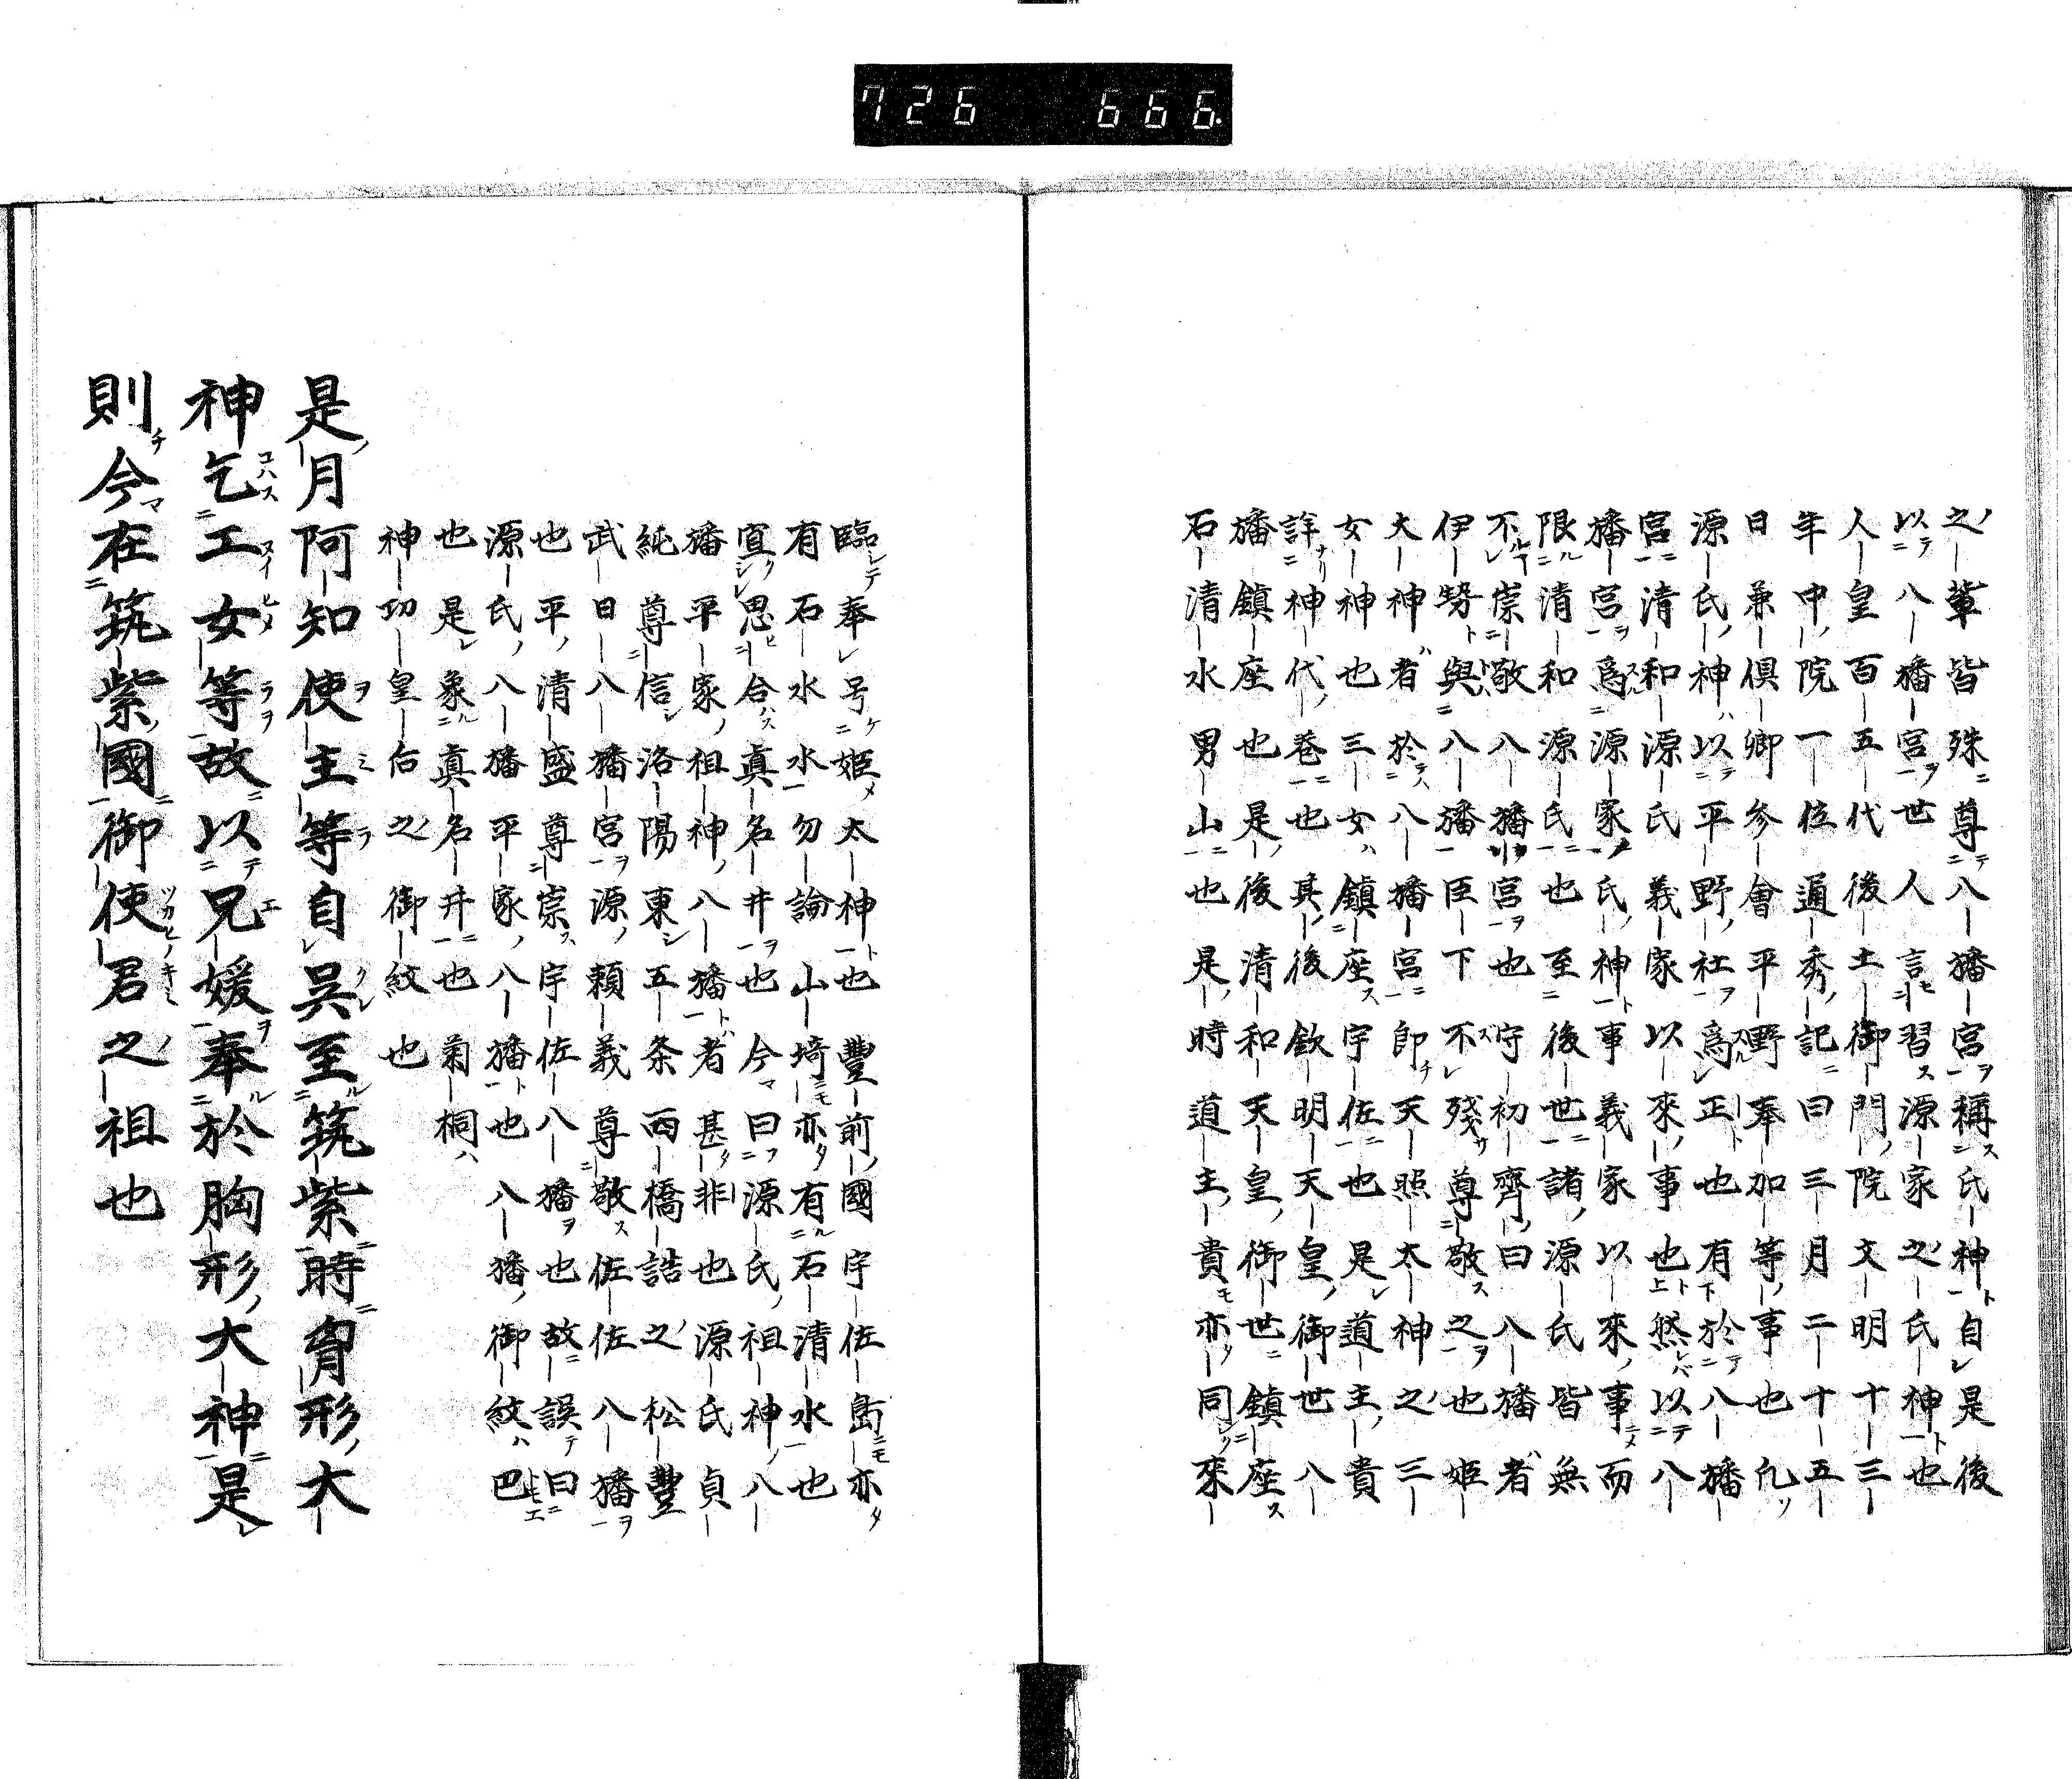 726 666.
之輩皆殊尊八幡宮稱氏神自是後
以八幡宮世人言習源家之氏神也
人皇百五代後土御門院文明十三
年中院一位通秀記曰三月二十五
日兼俱卿參會平野奉加等事也凢
源氏神以平野社爲正也有於八幡
宮清和源氏義家以來事也然以八
幡宮爲源家氏神事義家以來事而
限清和源氏也至後世諸源氏皆無
不崇敬八幡宮也守初齊曰八幡者
伊勢與八幡臣下不殘尊敬之也姫
大神者於八幡宮即天照太神之三
女神也三女鎮座宇佐也是道主貴
詳神代巻也其後欽明天皇御世八
幡鎮座也是後清和天皇御世鎮座
石清水男山也是時道主貴亦同來
臨奉号姫太神也豐前國宇佐島亦
有石水水勿論山埼亦有石清水也
宜思合真名井也今曰源氏祖神八
幡平家祖神八幡者甚非也源氏貞
純尊信洛陽東五条西橋詰之松豐
武日八幡宮源頼義尊敬佐佐八幡
也平清盛尊崇宇佐八幡也故誤曰
源氏八幡平家八幡也八幡御紋巴
也是象真名井也菊桐
神功皇后之御紋也
是月阿知使主等自呉至筑紫時胷形大
神乞工女等故以兄媛奉於胸形大神是
則今在筑紫國御使君之祖也